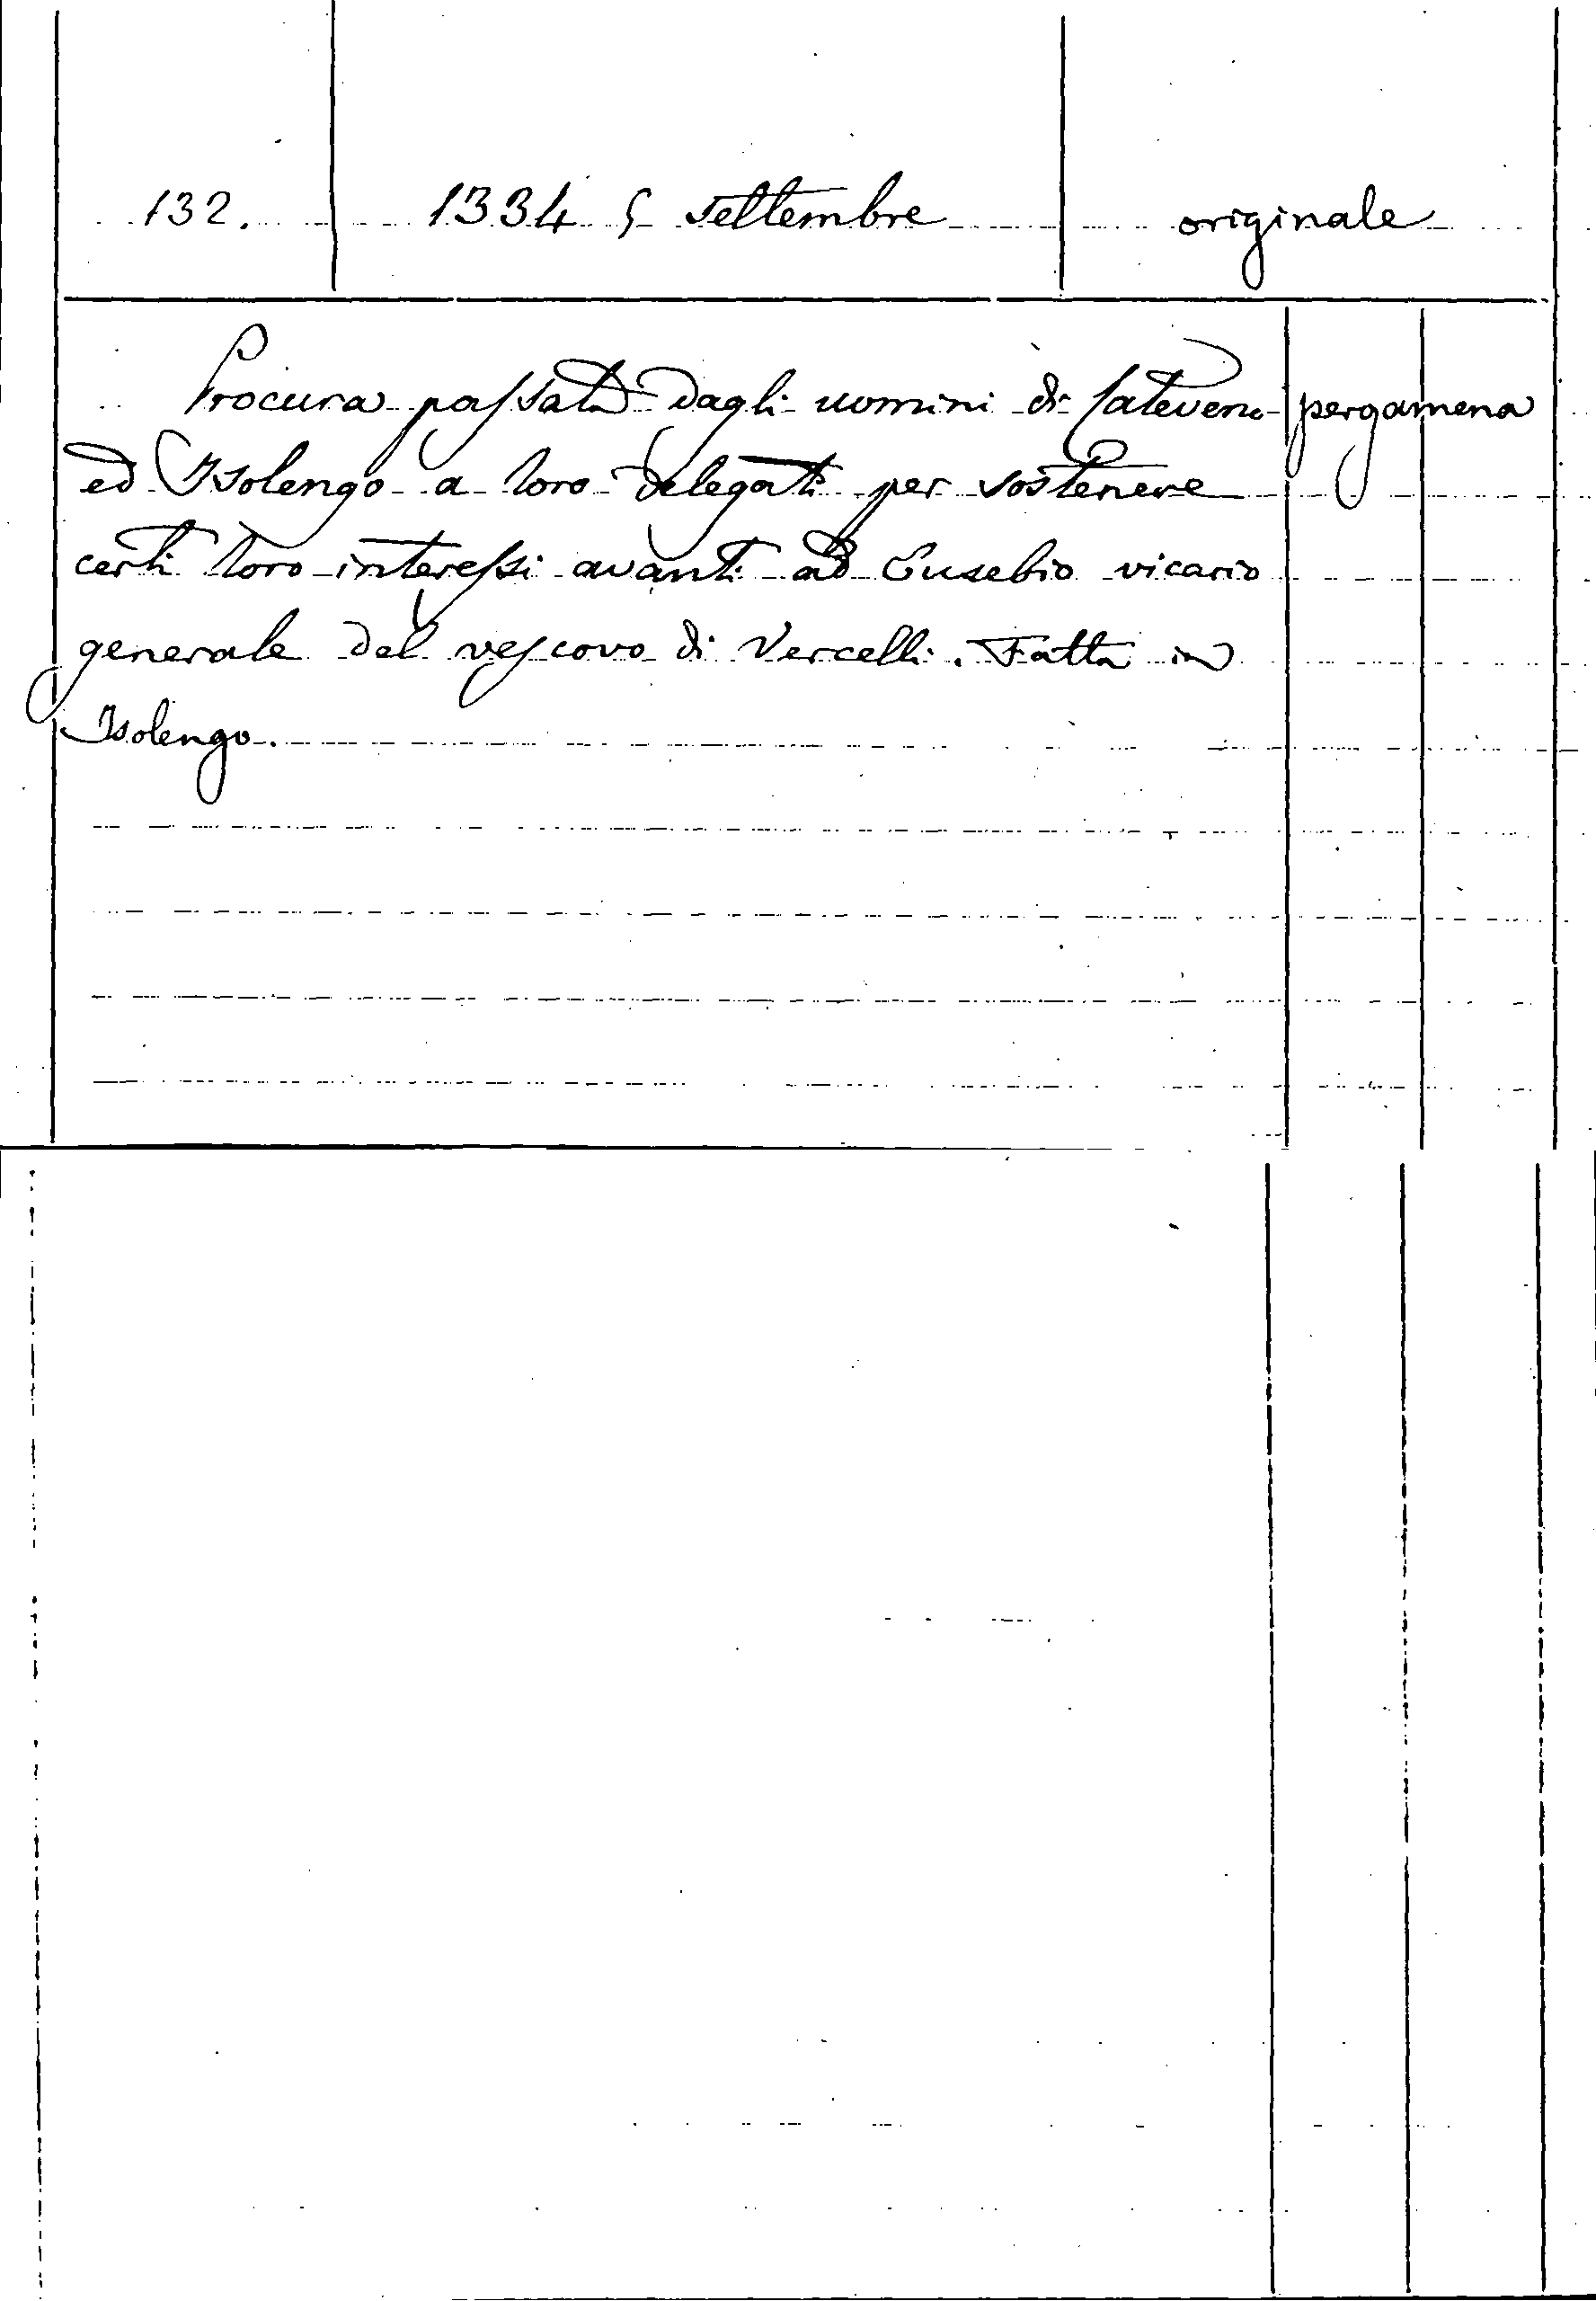 132. 1334 5 settembre originale
Procura passata dagli uomini di pergamena
ed Isolengo a loro delegati per sostenere
certi loro interessi avanti ad Eusebio vicario
generale del vescovo di Vercelli. Fatta in
Isolengo.